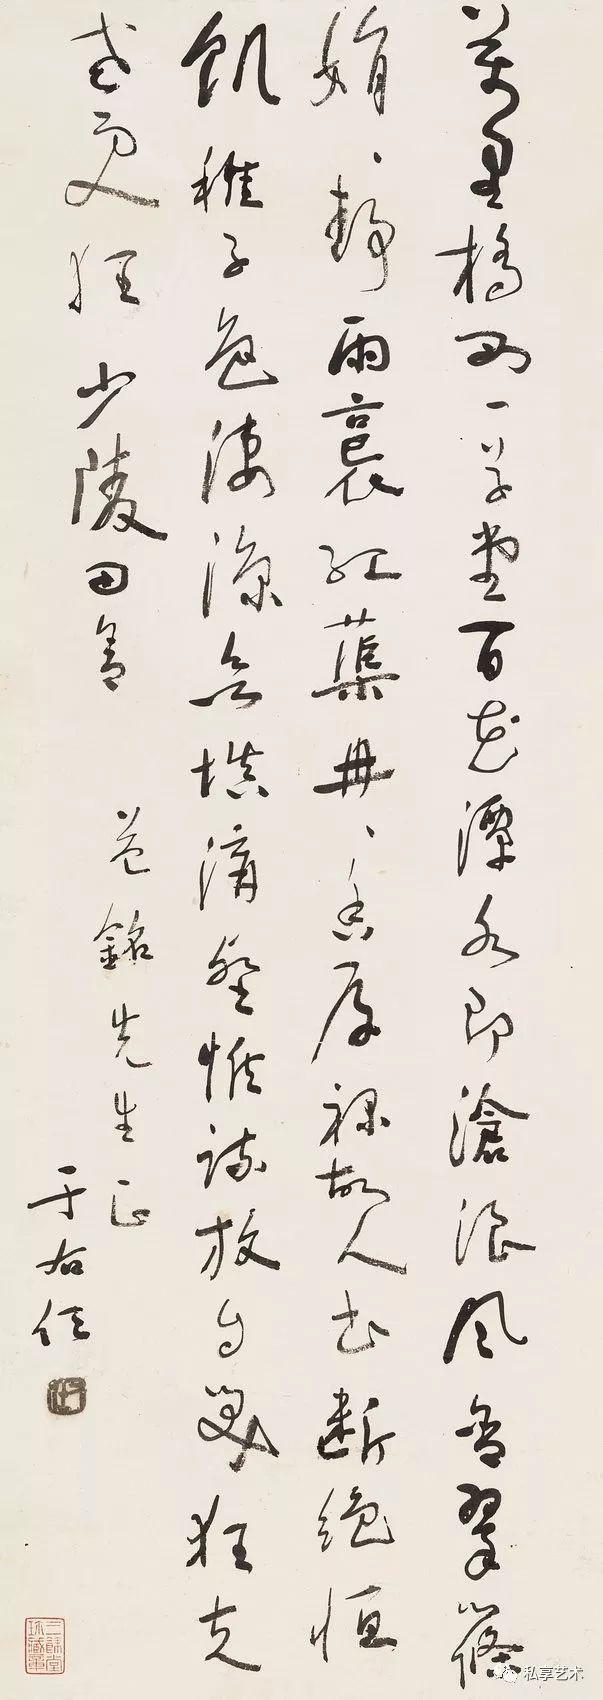 萬里橋西一草堂百花潭水即滄浪風含翠篠
娟〻靜雨裛紅蕖冉〻香厚祿故人書斷絕恆
飢稚子色淒涼欲填溝壑惟疏放自笑狂夫
老更狂 少陵
銘先生正
于右任
私享艺术